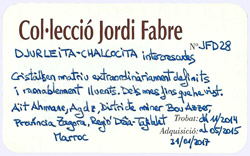 Col·lecció Jordi Fabre
DJURLEITA-CHALCOCITA interessades
Nº JFD28
Cristalls en matriu extraordinàriament definits
i raonablement lluents. Dels més fins que he vist.
Aït Ahmane, Agdz, Districte miner Bou Azzer,
Província Zagora, Regió Drâa-Tafilalet
Marroc
Trobat: 11/2014
Adquisició: 05/2015
31/01/2017